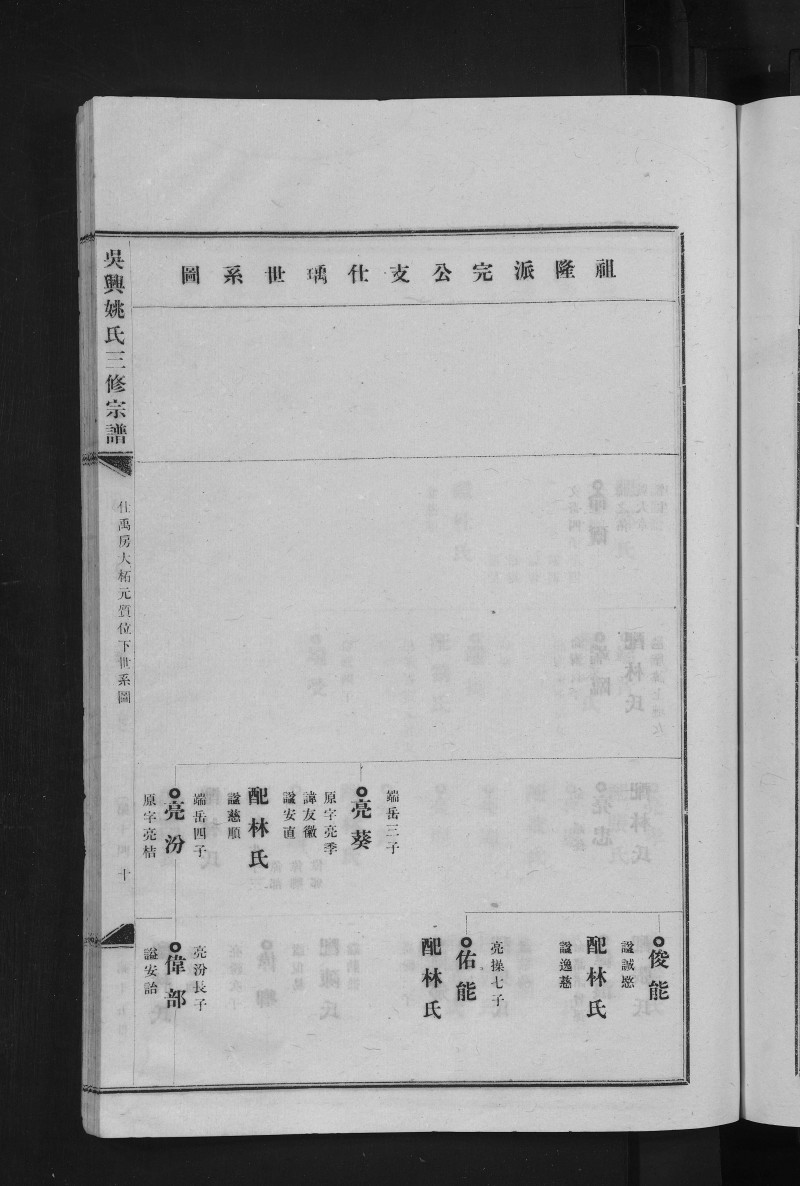 祖隆派完公支仕瑀世系圖
端岳三子
亮葵
原字亮季
諱友徽
諡安直
配林氏
諡慈順
端岳四子
亮汾
原字亮桔
俊能
諡誠慜
配林氏
諡逸慈
亮操七子
佑能
配林氏
亮汾長子
偉部
諡安詒
吳興姚氏三修宗譜
仕禹房大柘元質位下世系圖
十